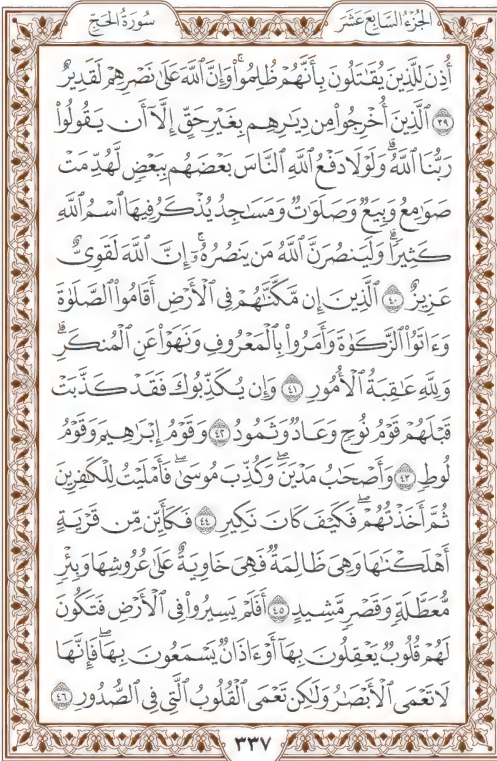 الجُزْءُ السَّابِعَ عَشَرَ
سُورَةُ الحَجِّ
أُذِنَ لِلَّذِينَ يُقَٰتَلُونَ بِأَنَّهُمْ ظُلِمُوا۟ ۚ وَإِنَّ ٱللَّهَ عَلَىٰ نَصْرِهِمْ لَقَدِيرٌ
٣٩ ٱلَّذِينَ أُخْرِجُوا۟ مِن دِيَٰرِهِم بِغَيْرِ حَقٍّ إِلَّآ أَن يَقُولُوا۟
رَبُّنَا ٱللَّهُ ۗ وَلَوْلَا دَفْعُ ٱللَّهِ ٱلنَّاسَ بَعْضَهُم بِبَعْضٍ لَّهُدِّمَتْ
صَوَٰمِعُ وَبِيَعٌ وَصَلَوَٰتٌ وَمَسَٰجِدُ يُذْكَرُ فِيهَا ٱسْمُ ٱللَّهِ
كَثِيرًا ۗ وَلَيَنصُرَنَّ ٱللَّهُ مَن يَنصُرُهُۥٓ ۗ إِنَّ ٱللَّهَ لَقَوِىٌّ
عَزِيزٌ ٤٠ ٱلَّذِينَ إِن مَّكَّنَّٰهُمْ فِى ٱلْأَرْضِ أَقَامُوا۟ ٱلصَّلَوٰةَ
وَءَاتَوُا۟ ٱلزَّكَوٰةَ وَأَمَرُوا۟ بِٱلْمَعْرُوفِ وَنَهَوْا۟ عَنِ ٱلْمُنكَرِ ۗ
وَلِلَّهِ عَٰقِبَةُ ٱلْأُمُورِ ٤١ وَإِن يُكَذِّبُوكَ فَقَدْ كَذَّبَتْ
قَبْلَهُمْ قَوْمُ نُوحٍ وَعَادٌ وَثَمُودُ ٤٢ وَقَوْمُ إِبْرَٰهِيمَ وَقَوْمُ
لُوطٍ ٤٣ وَأَصْحَٰبُ مَدْيَنَ ۖ وَكُذِّبَ مُوسَىٰ فَأَمْلَيْتُ لِلْكَٰفِرِينَ
ثُمَّ أَخَذْتُهُمْ ۖ فَكَيْفَ كَانَ نَكِيرِ ٤٤ فَكَأَيِّن مِّن قَرْيَةٍ
أَهْلَكْنَٰهَا وَهِىَ ظَالِمَةٌ فَهِىَ خَاوِيَةٌ عَلَىٰ عُرُوشِهَا وَبِئْرٍ
مُّعَطَّلَةٍ وَقَصْرٍ مَّشِيدٍ ٤٥ أَفَلَمْ يَسِيرُوا۟ فِى ٱلْأَرْضِ فَتَكُونَ
لَهُمْ قُلُوبٌ يَعْقِلُونَ بِهَآ أَوْ ءَاذَانٌ يَسْمَعُونَ بِهَا ۖ فَإِنَّهَا
لَا تَعْمَى ٱلْأَبْصَٰرُ وَلَٰكِن تَعْمَى ٱلْقُلُوبُ ٱلَّتِى فِى ٱلصُّدُورِ ٤٦
٣٣٧